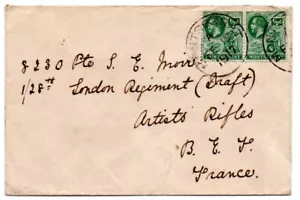 8230 Pte S. E. Moir
1/28th London Regiment (Draft)
Artists Rifles
B. E. F.
France.